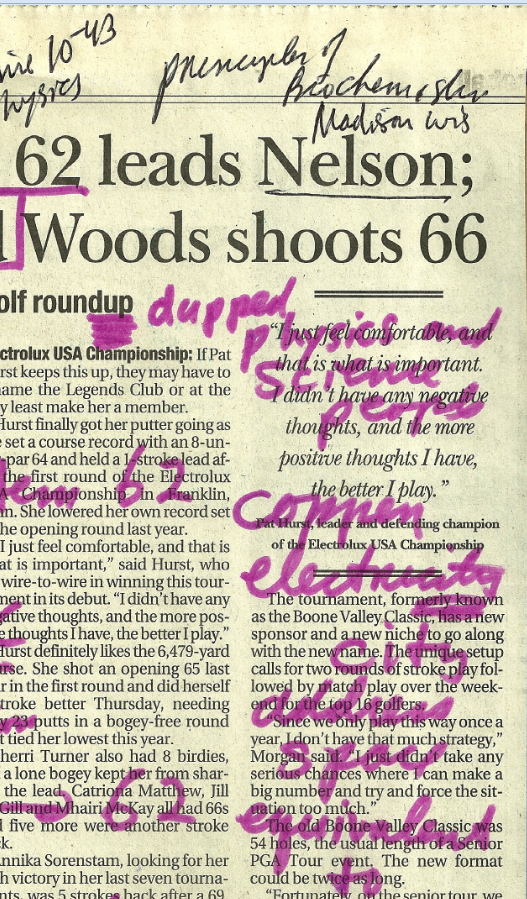 10-43
principles of
Biochemistry
Madison wis
62 leads Nelson;
Woods shoots 66
olf roundup
dupped
physics and
science
people
copper
electricity
city
space
equivalent
to
62
62
ctrolux USA Championship: If Pat
rst keeps this up, they may have to
name the Legends Club or at the
y least make her a member.
Hurst finally got her putter going as
e set a course record with an 8-un-
-par 64 and held a 1-stroke lead af-
the first round of the Electrolux
A Championship in Franklin,
n. She lowered her own record set
he opening round last year.
I just feel comfortable, and that is
at is important," said Hurst, who
wire-to-wire in winning this tour-
ment in its debut. "I didn't have any
gative thoughts, and the more pos-
e thoughts I have, the better I play."
Hurst definitely likes the 6,479-yard
urse. She shot an opening 65 last
r in the first round and did herself
stroke better Thursday, needing
y 23 putts in a bogey-free round
t tied her lowest this year.
herri Turner also had 8 birdies,
d a lone bogey kept her from shar-
the lead. Catriona Matthew, Jill
Gill and Mhairi McKay all had 66s
d five more were another stroke
ck.
Annika Sorenstam, looking for her
h victory in her last seven tourna-
nts, was 5 strokes back after a 69.
"I just feel comfortable, and
that is what is important.
I didn't have any negative
thoughts, and the more
positive thoughts I have,
the better I play."
Pat Hurst, leader and defending champion
of the Electrolux USA Championship
The tournament, formerly known
as the Boone Valley Classic, has a new
sponsor and a new niche to go along
with the new name. The unique setup
calls for two rounds of stroke play fol-
lowed by match play over the week-
end for the top 16 golfers.
"Since we only play this way once a
year, I don't have that much strategy,"
Morgan said. "I just didn't take any
serious chances where I can make a
big number and try and force the sit-
uation too much."
The old Boone Valley Classic was
54 holes, the usual length of a Senior
PGA Tour event. The new format
could be twice as long.
"Fortunately, on the senior tour, we